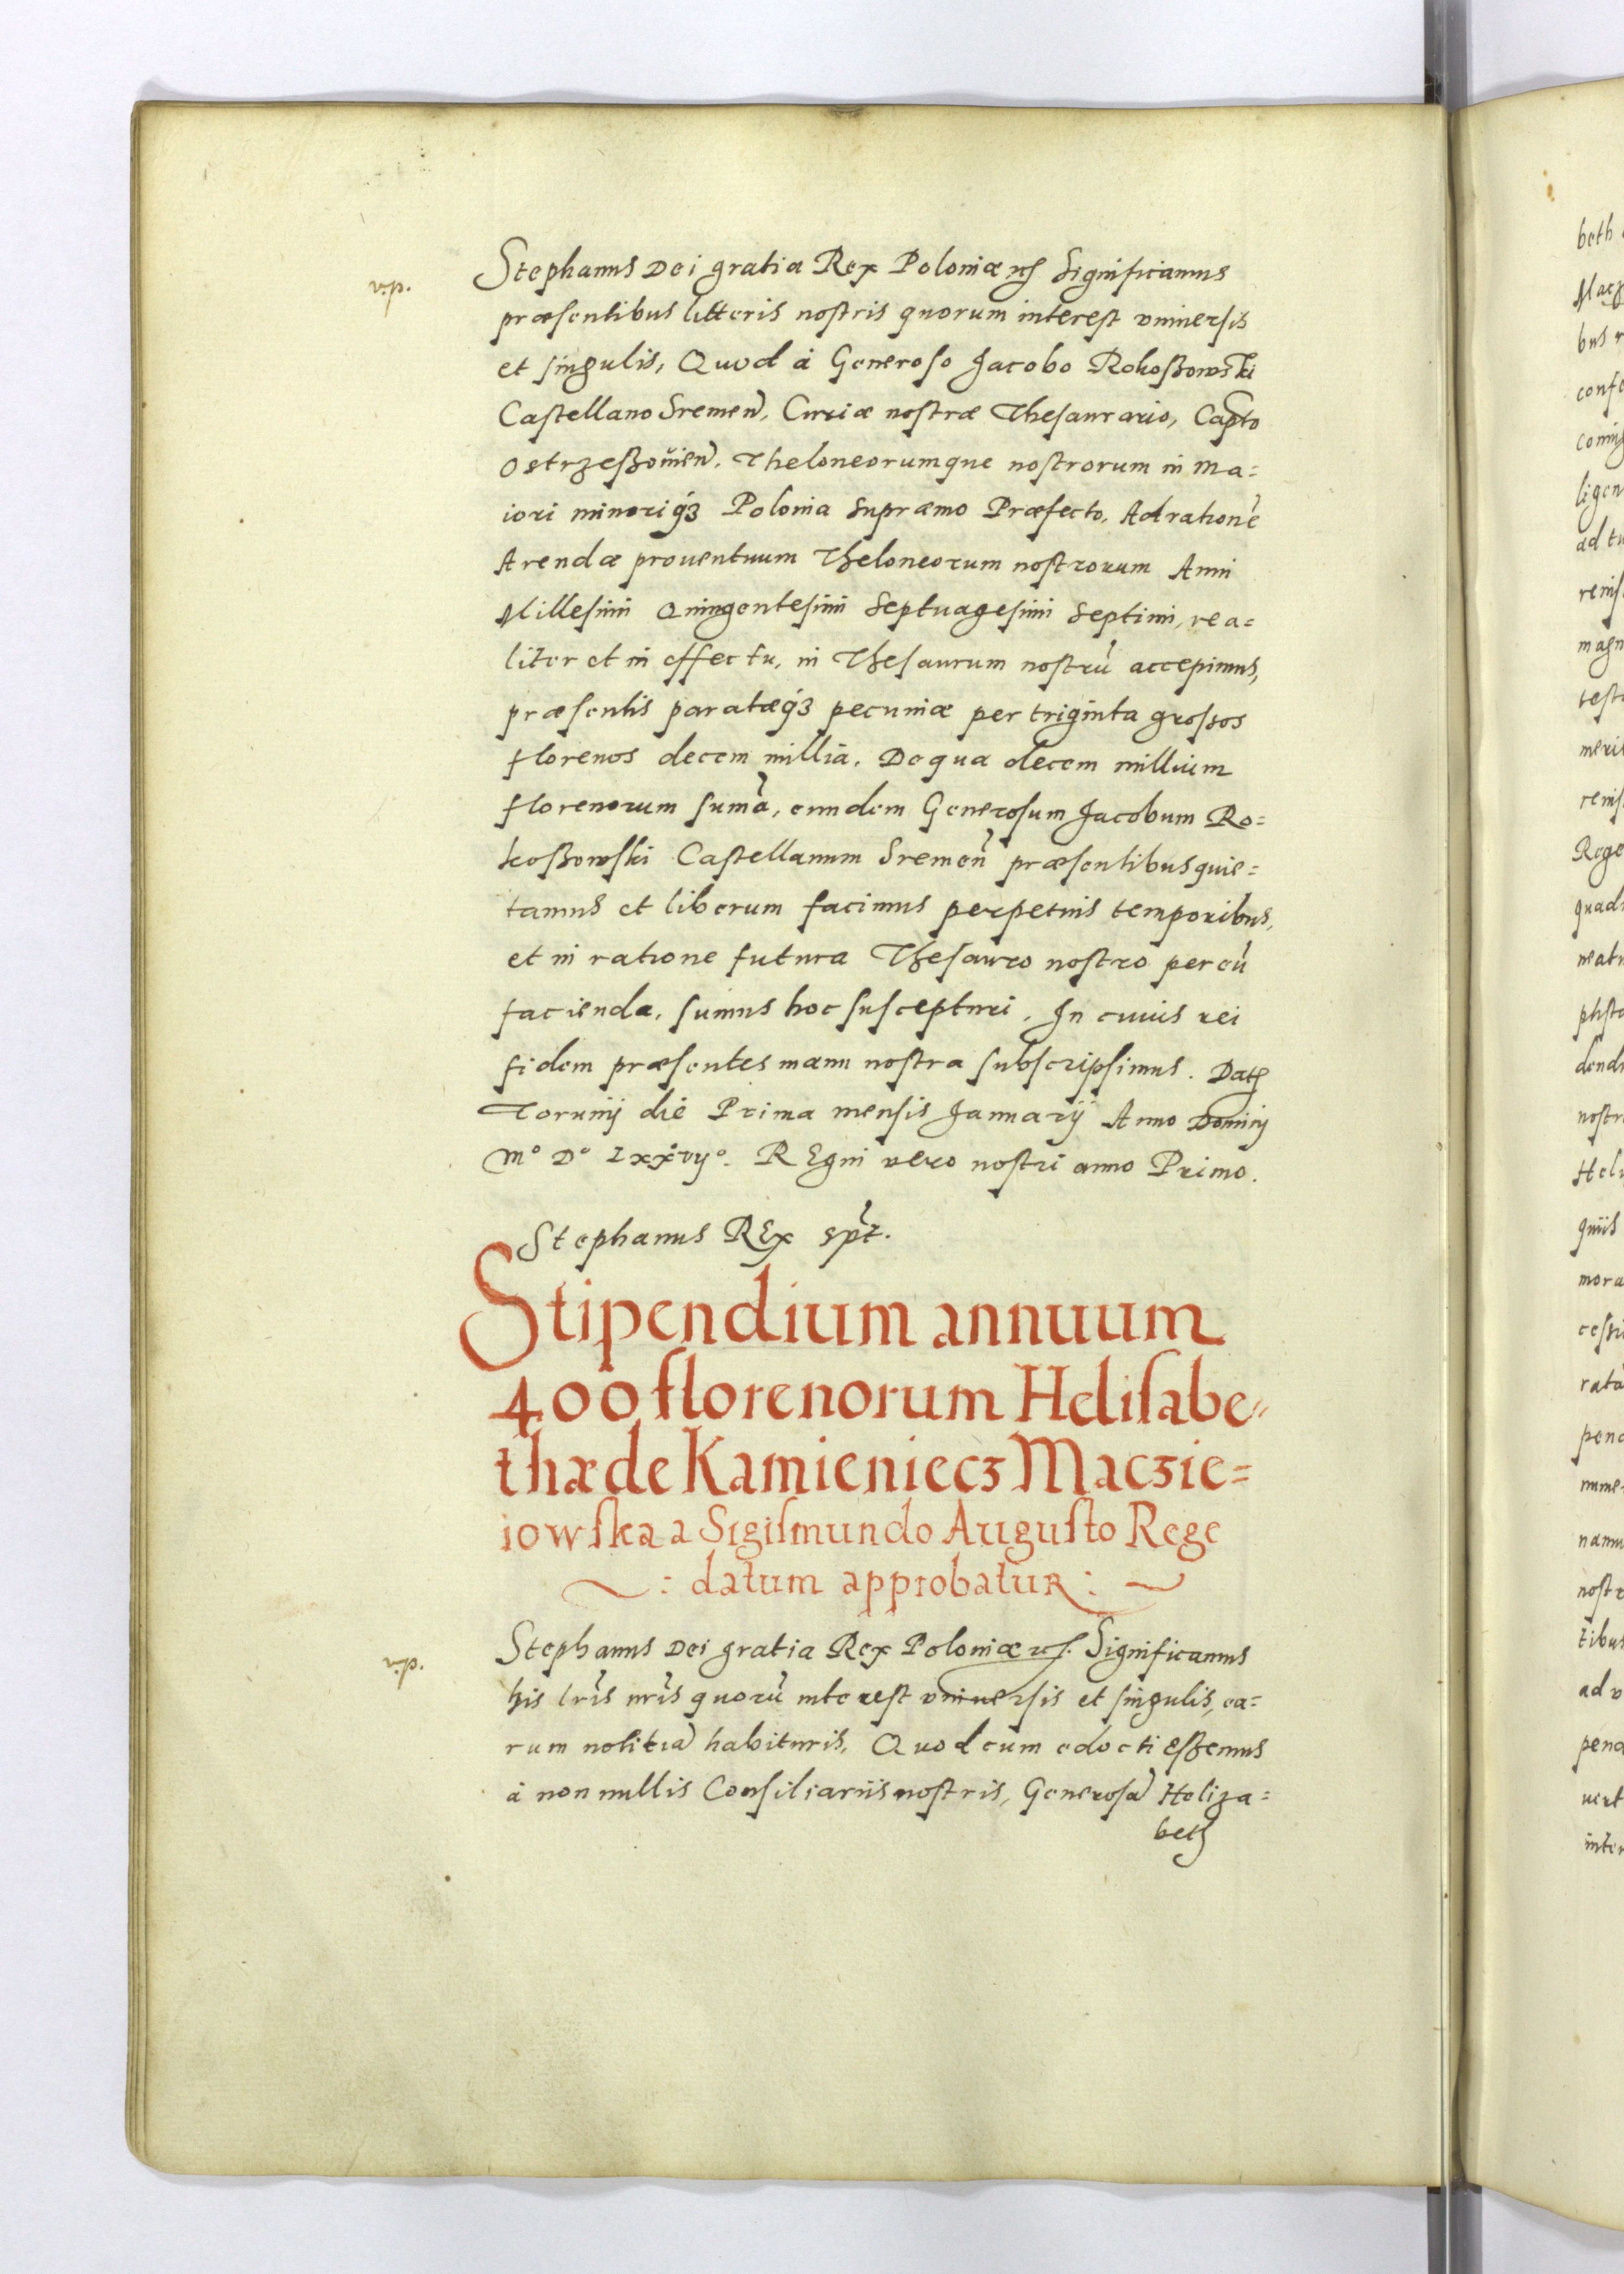 Stephanus Dei gratia Rex Poloniæ ꝛcꝭ Significamus
præsentibus litteris nostris quorum interest vniuersis
et singulis, Quod à Generoso Jacobo Rokoßowski
Castellano Sremeñ, Curiæ nostræ Thesaurario, Capto
Ostrzeßouieñ. Theloneorumque nostrorum in Ma=
iori minoriqꝫ Polonia Supræmo Præfecto, Ad rationē
Arendæ prouentuum Theloneorum nostrorum Anni
Millesimi Quingentesimi Septuagesimi Septimi, rea=
liter et in effectu, in Thesaurum nostrū accepimus,
præsentis paratæqꝫ pecuniæ per triginta grossos
florenos decem millia. De qua decem millium
florenorum sumā, eundem Generosum Jacobum Ro=
koßowski Castellanum Sremeñ præsentibus quie=
tamus et liberum facimus perpetuis temporibus,
et in ratione futura Thesauro nostro per eū
facienda, sumus hoc suscepturi. In cuius rei
fidem præsentes manu nostra subscripsimus. Datꝭ
Torunij die Prima mensis Januarij Anno Dominij
Mº Dº Lxxvijº. REgni vero nostri anno Primo.
Stephanus REx spt̃.
Stipendium annuum
400 florenorum Helisabe=
thæ de Kamieniecz Maczie=
iowska a Sigismundo Augusto Rege
: datum approbatur :
Stephanus Dei gratia Rex Poloniæ ꝛcꝭ. Significamus
his lrı̃s nrı̃s quorū interest vniuersis et singulis, ea=
rum notitiã habituris, Quod cum edocti eßemus
à non nullis Consiliariis nostris, Generosã Heliza=
beth